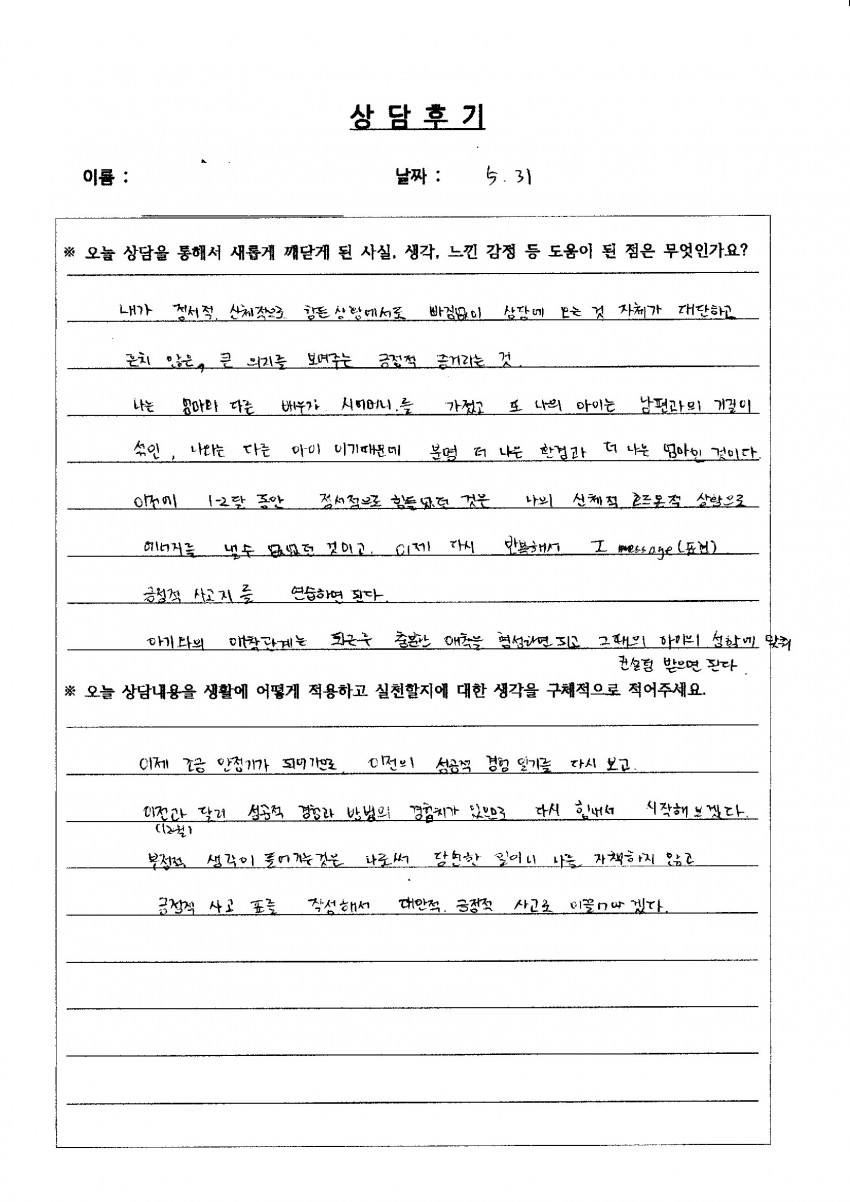 상 담 후 기
이름 :
날짜 : 5. 31
※ 오늘 상담을 통해서 새롭게 깨닫게 된 사실, 생각, 느낀 감정 등 도움이 된 점은 무엇인가요?
내가 정서적, 신체적으로 힘든 상황에서도 빠짐없이 상담에 오는 것 자체가 대단하고
흔치 않은, 큰 의지를 보여주는 긍정적 증거라는 것.
나는 엄마와 다른 배우자 시어머니를 가졌고 또 나의 아이는 남편과의 기질이
섞인, 나와는 다른 아이 이기때문에 분명 더 나은 환경과 더 나은 엄마인 것이다.
이전에 1-2달 동안 정서적으로 힘들었던 것은 나의 신체적 호르몬적 상황으로
에너지를 낼수 없었던 것이고. 이제 다시 반복해서 I message (표현)
긍정적 사고지를 연습하면 된다.
아기와의 애착관계는 퇴근후 충분한 애착을 형성하면 되고 그때의 아이의 성향에 맞춰
컨설팅 받으면 된다.
※ 오늘 상담내용을 생활에 어떻게 적용하고 실천할지에 대한 생각을 구체적으로 적어주세요.
이제 조금 안정기가 되어가므로, 이전의 성공적 경험 일기를 다시 보고.
이전과 달리 성공적 경험과 방법의 경험치가 있으므로 다시 힘내서 시작해 보겠다.
(12월)
부정적 생각이 들어가는것은 나로써 당연한 일이니 나를 자책하지 않고
긍정적 사고 표를 작성해서 대안적, 긍정적 사고로 이끌어나가겠다.